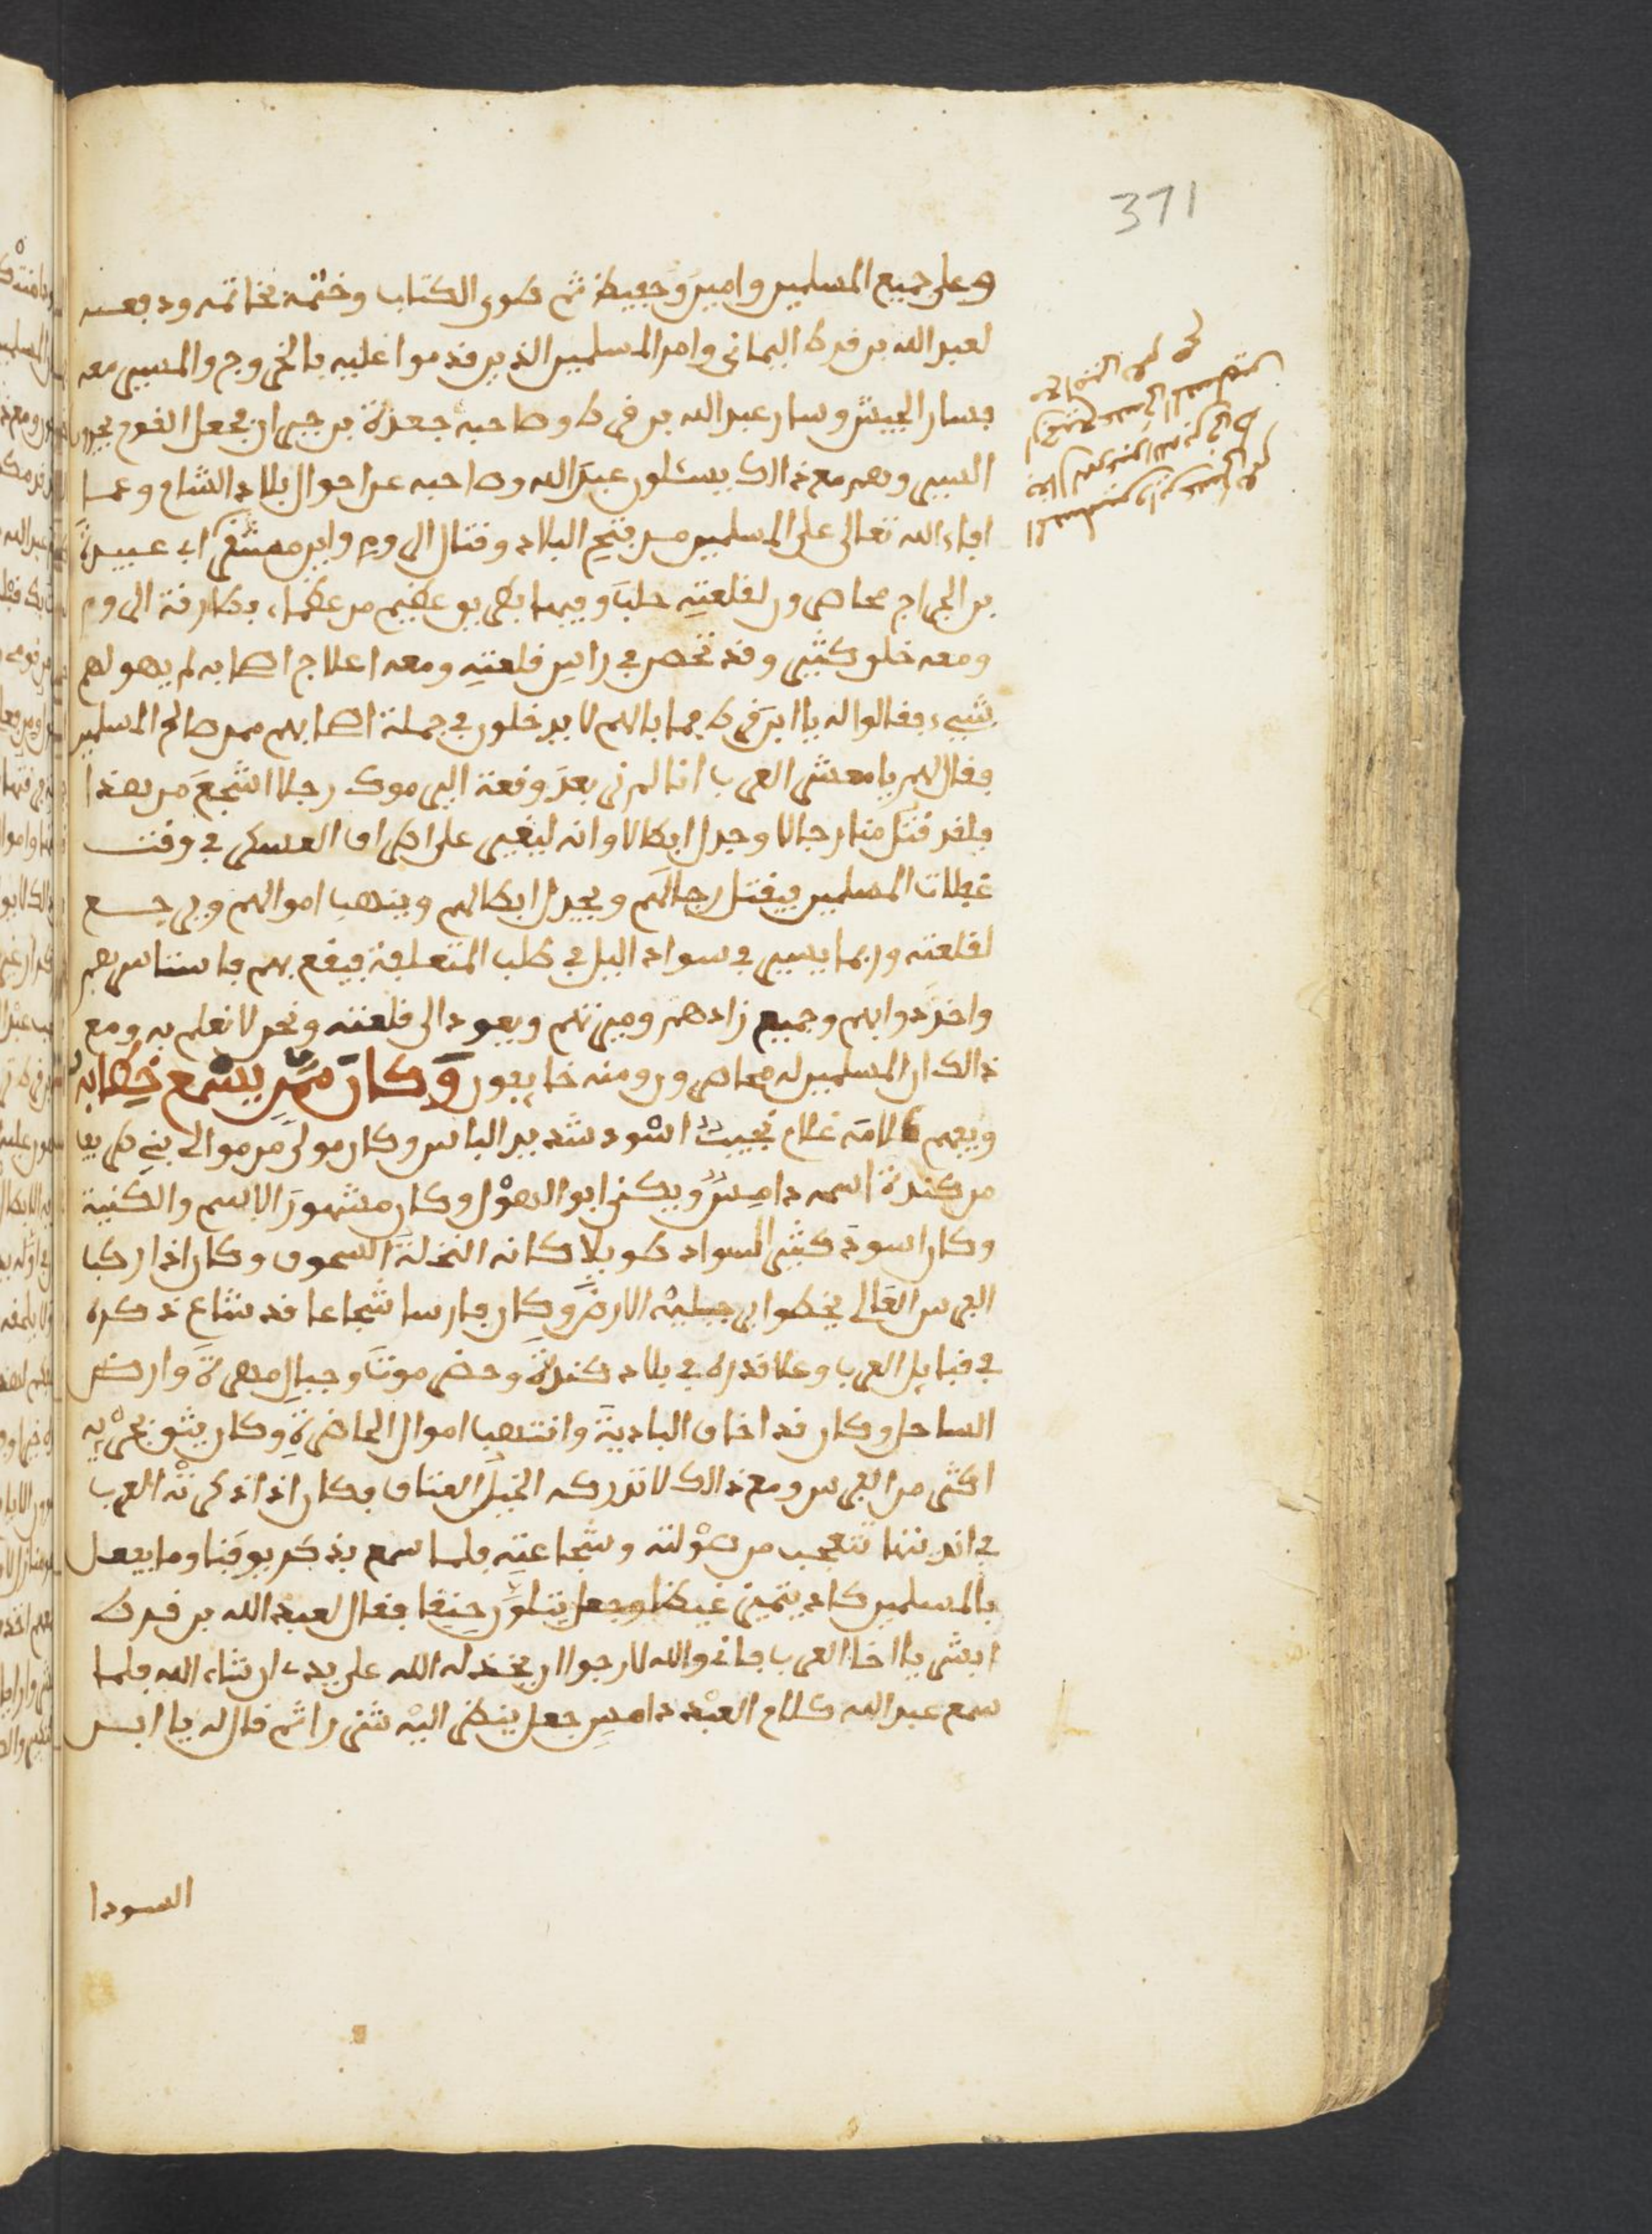 371
وعلى جميع المسلمين وامين وحفيظ ثم طوى الكتاب وختمه بخاتمه ودفعه
لعبد الله بن قرط اليماني وامر المسلمين الذين قدموا عليه بالخروج والمسير معه
فسار الجيش وسار عبد الله بن قرط وصاحبه جعدة بن جبير ان فجعل القوم يجدون
السير وهم مع ذالك يسئلون عبد الله وصاحبه عن احوال بلاد الشام وعما
افاء الله تعالى على المسلمين من فتح البلاد وقتال الروم واين معشر ابى عبيدة
بن الجراح محاصرون لقلعة حلب وفيها بطريق عظيم من عظماء بطارقة الروم
ومعه خلق كثير وقد تحصن في راس قلعته ومعه اعلاج اصحابه لم يهولهم
شيء فقالوا له يا ابن قرط فما بالهم لا يدخلون في جملة اصحابهم ممن صالح المسلمين
فقال لهم يا معشر العرب انا لم نر بعد وقعة اليرموك رجلا اشجع من هذا
فلقد قتل منا رجالا وجدل ابطالا وانه ليغير على اطراف العسكر في وقت
غفلات المسلمين فيقتل رجالهم ويجدل ابطالهم وينهب اموالهم ويرجع
لقلعته وربما يسير في سواد الليل في طلب المتعلفة فيقع بهم فاستاسرهم
واخذ دوابهم وجميع زادهم وميرتهم ويعود الى قلعته ونحن لا نعلم به ومع
ذالك ان المسلمين له محاصرون ومنه خايفون وكان ممن يسمع خطابه
ويفهم كلامه غلام نجيب اسود شديد الباس وكان مولى من موالى بني طريف
من كندة اسمه دامس ويكنى ابو الهول وكان مشهور الاسم والكنية
وكان اسود كثير السواد طويلا كانه النخلة السحوق وكان اذا ركب
الفرس العالى يخطوا برجليه الارض وكان فارسا شجاعا قد شاع ذكره
في قبايل العرب وعلا قدره في بلاد كندة وحضرموت وجبال مهرة وارض
الساحل وكان قد اخاف البادية وانتهب اموال الحاضرة وكان يثق بجريه
اكثر من الفرس ومع ذالك لا تدركه الخيل العتاق فكان اذا ذكرته العرب
في انديتها تتعجب من صولته وشجاعته فلما سمع بذكر يوقنا وما يفعل
بالمسلمين كاد يتميز غيظا وجعل يتلون حنقا فقال لعبد الله بن قرط
ابشر يا اخا العرب فانى والله لارجوا ان يخذله الله على يدى ان شاء الله فلما
سمع عبد الله كلام العبد دامس جعل ينظر اليه شزرا ثم قال له يا ابن
السودا